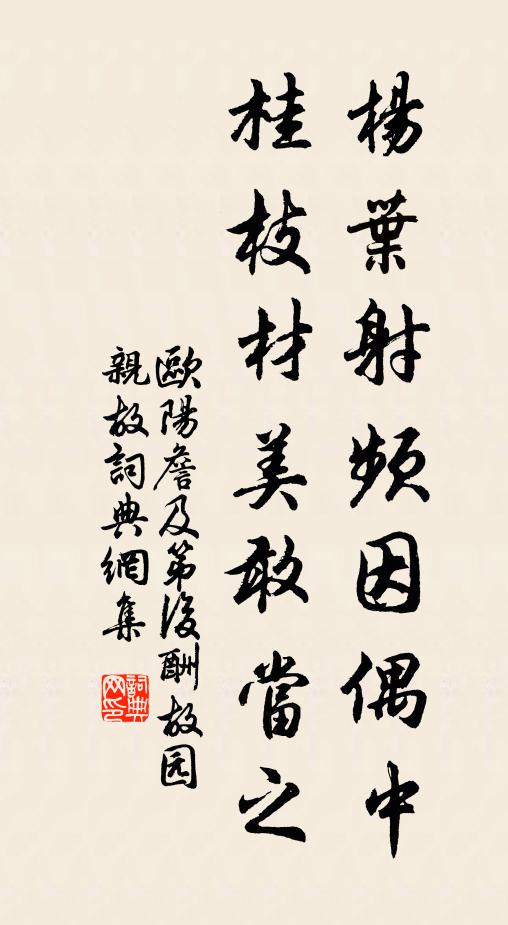 楊葉射頻因偶中
桂枝材美敢當之
歐陽詹及第後酬故园
親故詞典網集
詞典
网印